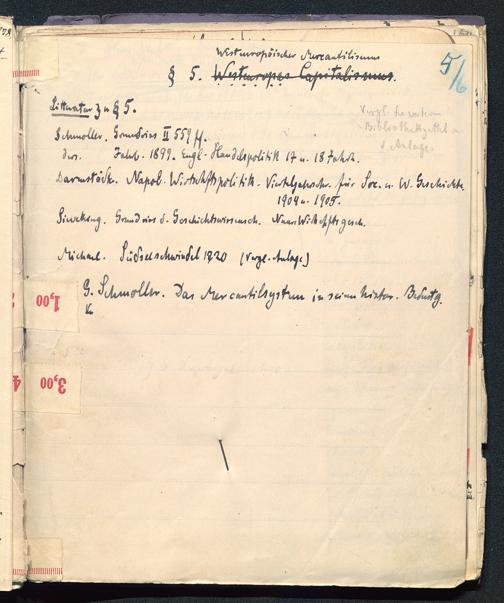 Westeuropäischer Mercantilismus
§ 5. Westeuropas Capitalismus.
5/6
Litteratur zu § 5.
Vergl. hierzu
Bibliothekzettel
d. Anlage
Schmoller. Grundriss II 559 ff.
ders. Jahrb. 1899. Engl. Handelspolitik 17 u. 18 Jahrh.
Darmstädt. Napol. Wirtschftspolitik. Vierteljahrschr. für Soc. u. W. Geschichte
1904 u. 1905.
Sieveking. Grundriss d. Geschichtswissensch. Neuere Wirtschftsgesch.
Michael. Südseeschwindel 1720 (Vergl. Anlage)
G. Schmoller. Das Mercantilsystem in seiner histor. Bedeutg.
1,00
3,00